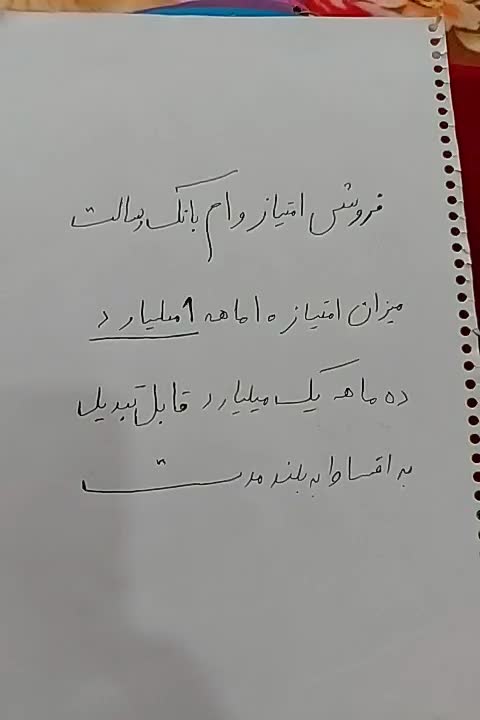 فروش امتیاز وام بانک رسالت
میزان امتیاز ۱۰ ماهه ۱ میلیارد
ده ماهه یک میلیارد قابل تبدیل
به اقساط به بلند مدت